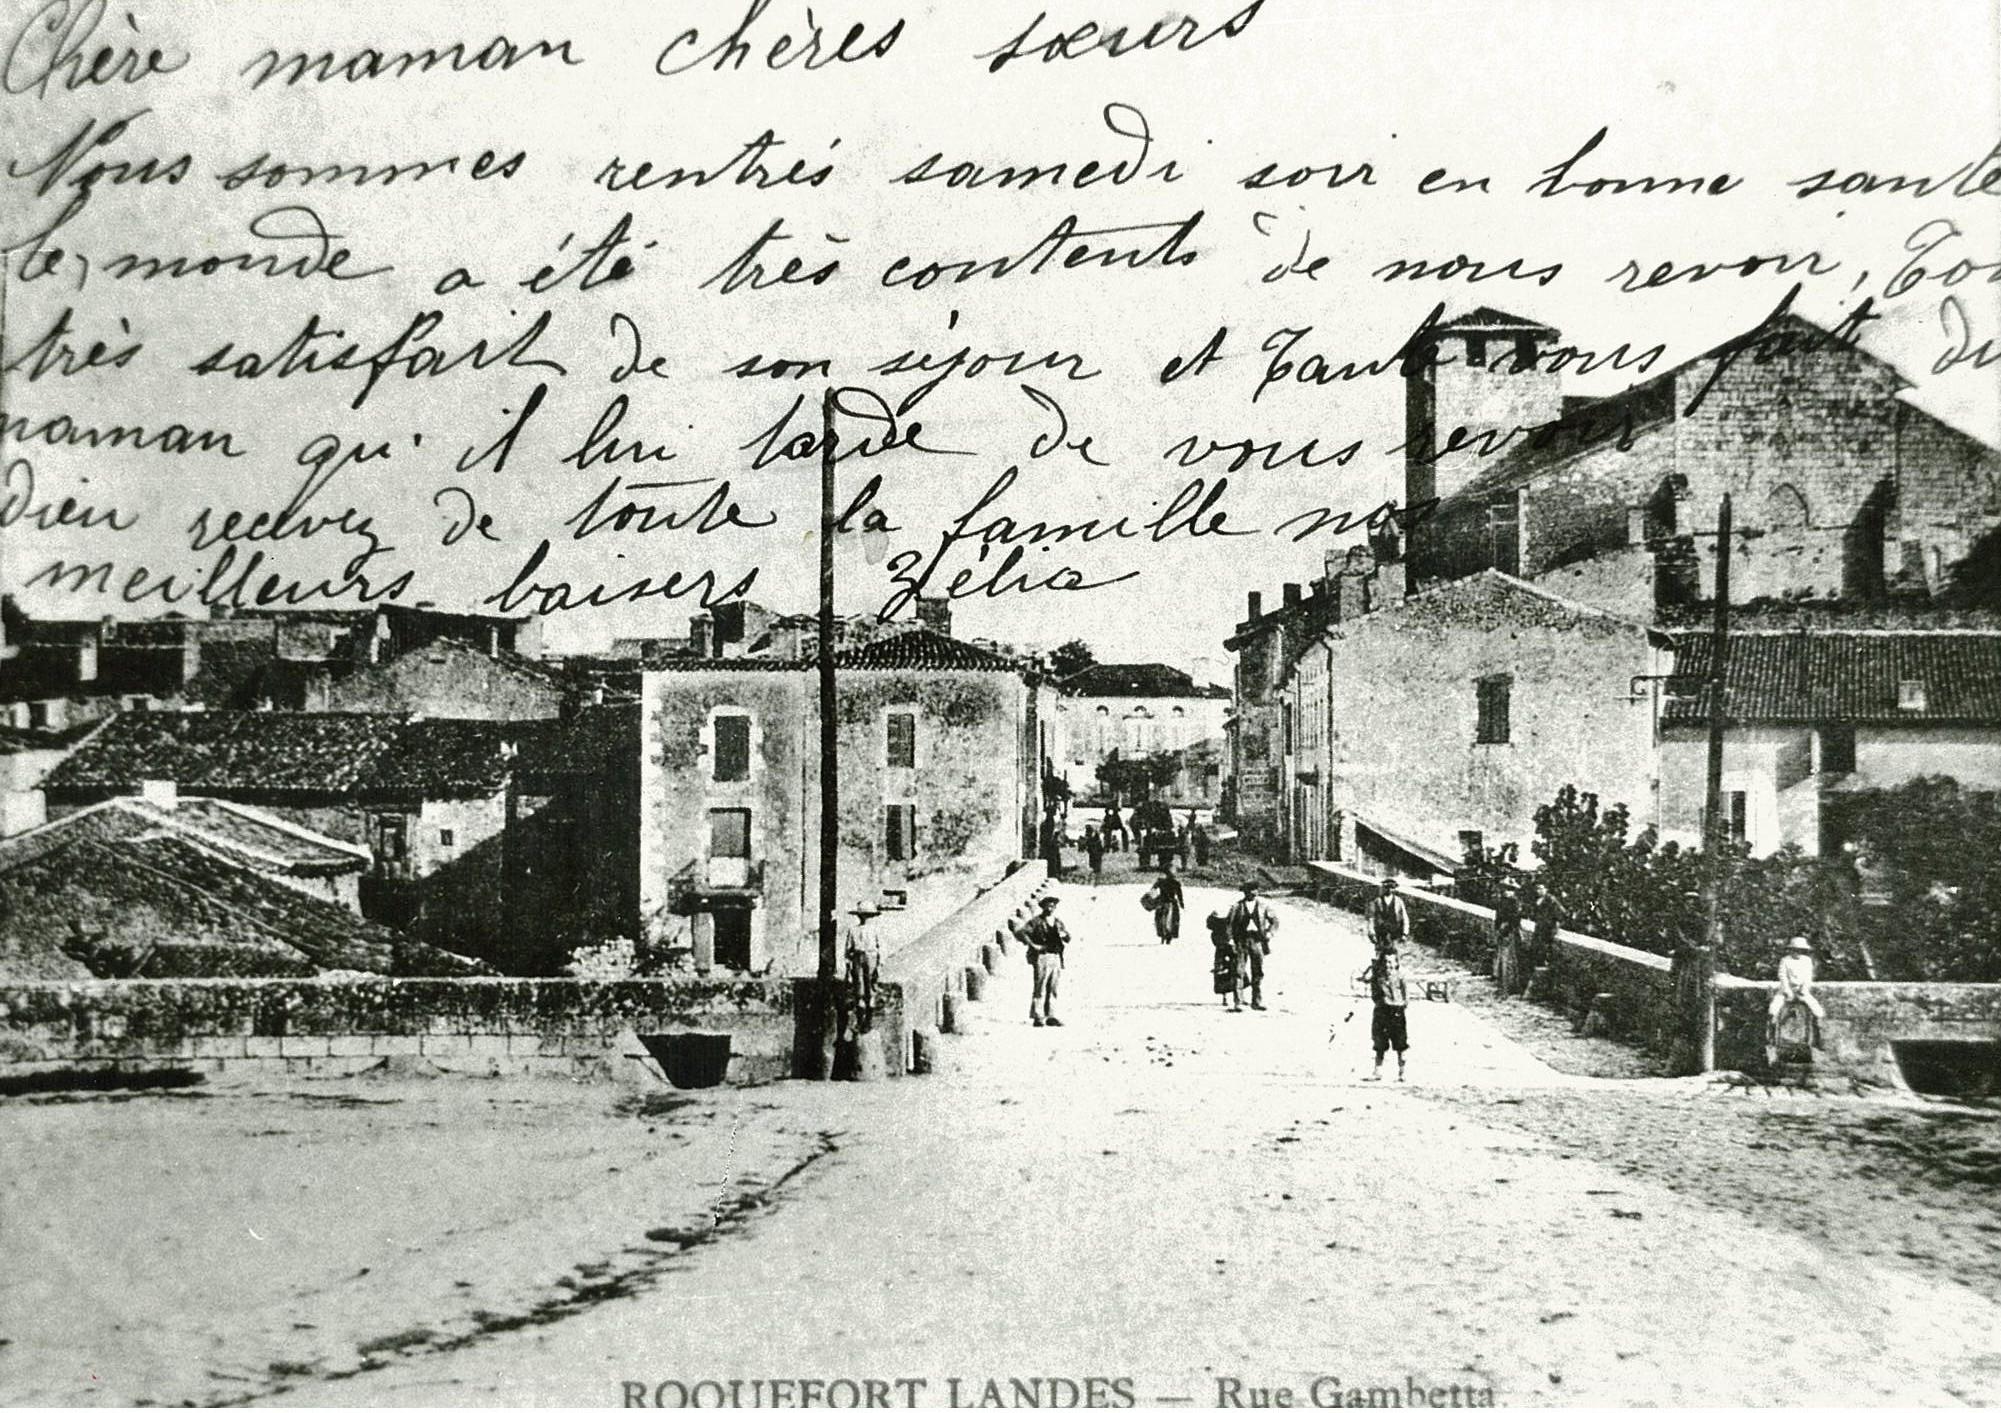 Chère maman chères sœurs
Nous sommes rentrés samedi soir en bonne santé
le monde a été très contents de nous revoir, Ton
très satisfait de son séjour et Tante vous fait di
maman qu'il lui tarde de vous revoir
dieu recevez de toute la famille nos
meilleurs baisers Zélia
ROQUEFORT LANDES — Rue Gambetta